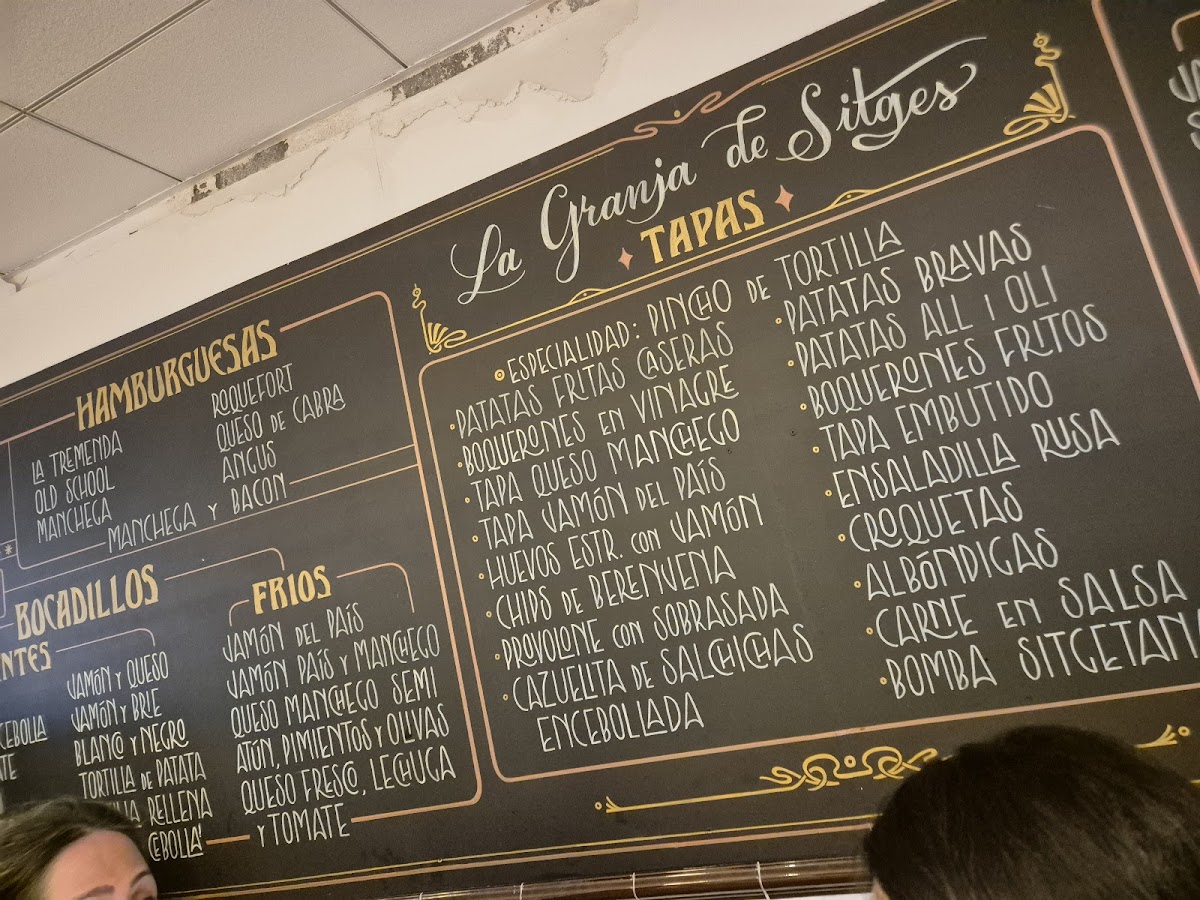 La Granja de Sitges
TAPAS
ESPECIALIDAD: PINCHO DE TORTILLA
PATATAS FRITAS CASERAS
BOQUERONES EN VINAGRE
TAPA QUESO MANCHEGO
TAPA JAMÓN DEL PAÍS
HUEVOS ESTR. CON JAMÓN
CHIPS DE BERENJENA
PROVOLONE CON SOBRASADA
CAZUELITA DE SALCHICHAS
ENCEBOLLADA
PATATAS BRAVAS
PATATAS ALL I OLI
BOQUERONES FRITOS
TAPA EMBUTIDO
ENSALADILLA RUSA
CROQUETAS
ALBÓNDIGAS
CARNE EN SALSA
BOMBA
HAMBURGUESAS
LA TREMENDA
OLD SCHOOL
MANCHEGA
ROQUEFORT
QUESO DE CABRA
ANGUS
MANCHEGA Y BACON
BOCADILLOS
JAMÓN Y QUESO
JAMÓN Y BRIE
BLANCO Y NEGRO
TORTILLA DE PATATA
RELLENA
CEBOLLA
FRIOS
JAMÓN DEL PAÍS
JAMÓN PAÍS Y MANCHEGO
QUESO MANCHEGO SEMI
ATÚN, PIMIENTOS Y OLIVAS
QUESO FRESCO, LECHUGA
Y TOMATE